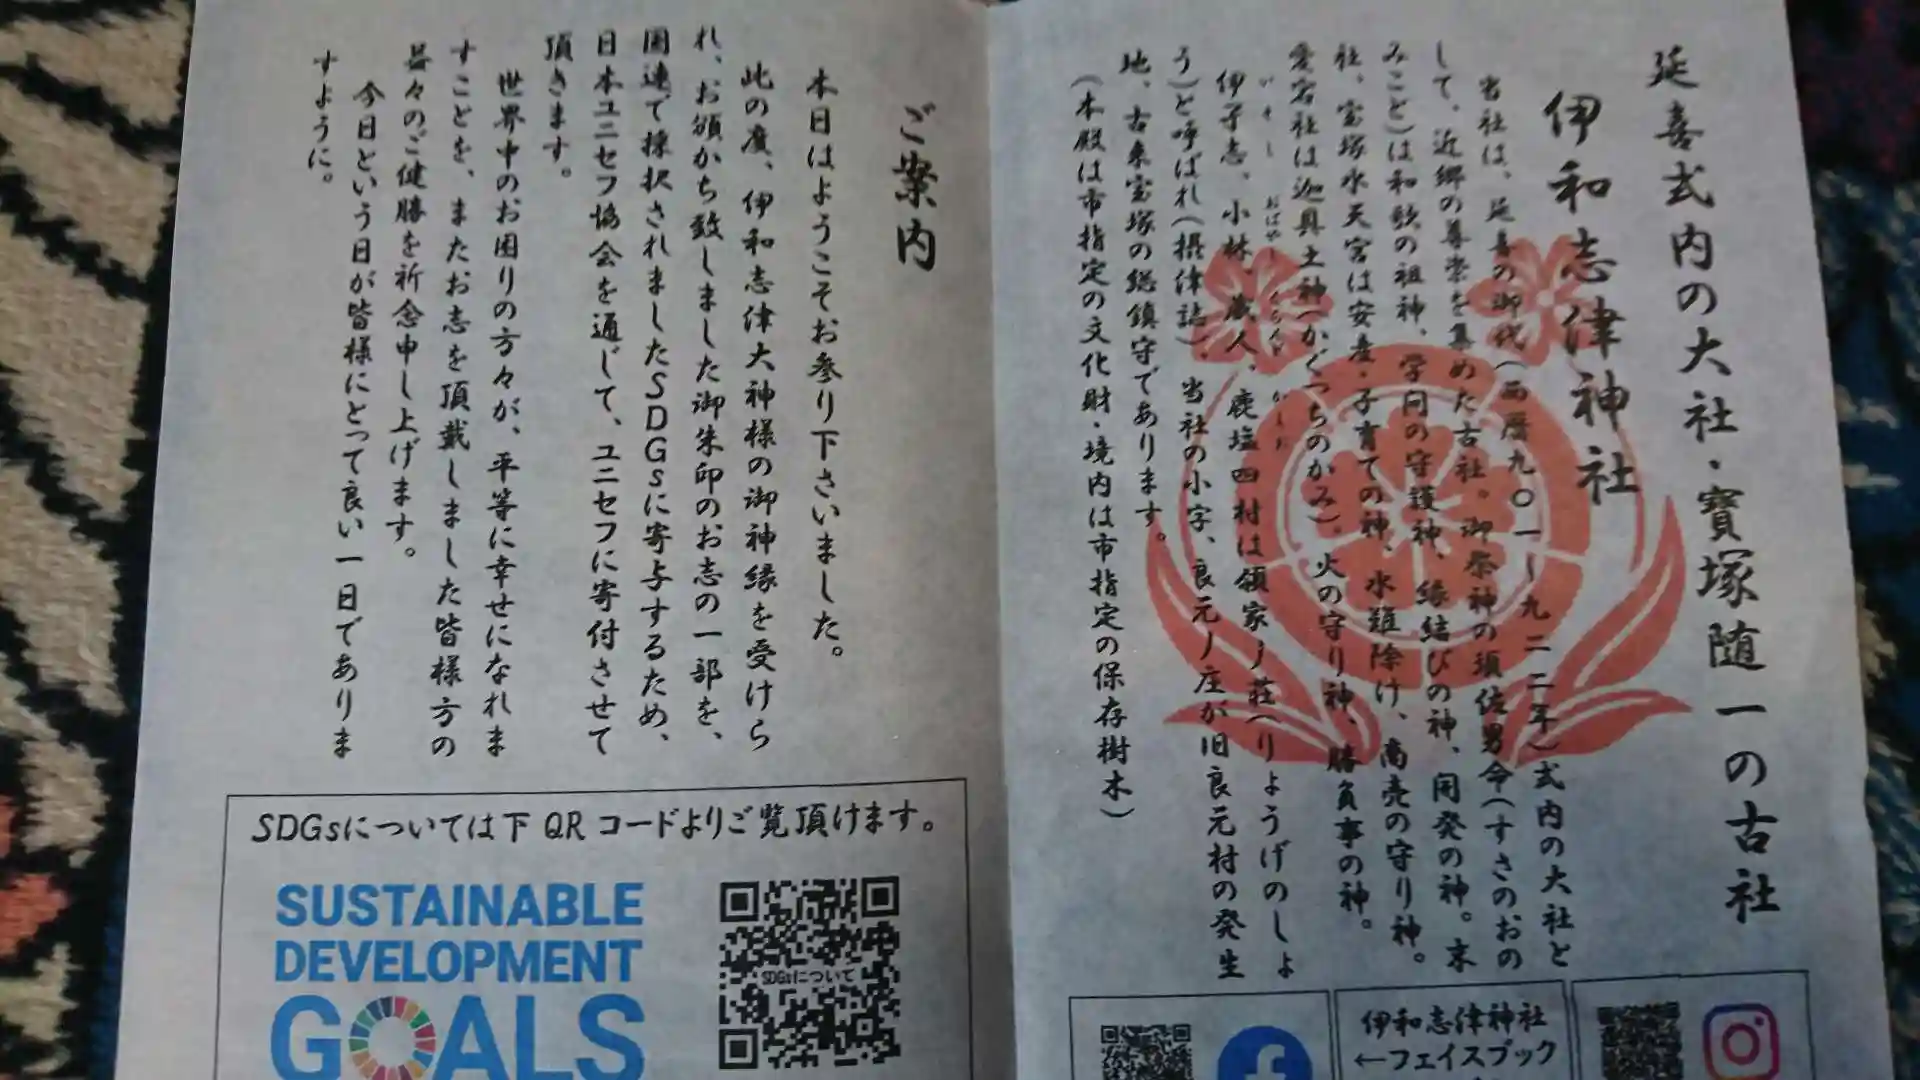 延喜式内の大社・寶塚随一の古社
伊和志津神社
当社は、延喜の御代(西暦九〇一〜九二二年)式内の大社と
して、近郷の尊崇を集めた古社。御祭神の須佐男命(すさのおの
みこと)は和歌の祖神、学問の守護神、縁結びの神、開発の神。末
社、宝塚水天宮は安産・子育ての神、水難除け、商売の守り神。
愛宕社は迦具土神(かぐつちのかみ)、火の守り神、勝負事の神。
いそし おばやし くらんど かしお
伊孑志、小林、蔵人、鹿塩四村は領家ノ荘(りょうげのしょ
う)と呼ばれ(摂津誌)、当社の小字、良元ノ庄が旧良元村の発生
地、古来宝塚の総鎮守であります。
(本殿は市指定の文化財・境内は市指定の保存樹木)
伊和志津神社
←フェイスブック
ご案内
本日はようこそお参り下さいました。
此の度、伊和志津大神様の御神縁を受けら
れ、お頒かち致しました御朱印のお志の一部を、
国連で採択されましたSDGsに寄与するため、
日本ユニセフ協会を通じて、ユニセフに寄付させて
頂きます。
世界中のお困りの方々が、平等に幸せになれま
すことを、またお志を頂戴しました皆様方の
益々のご健勝を祈念申し上げます。
今日という日が皆様にとって良い一日でありま
すように。
SDGsについては下 QR コードよりご覧頂けます。
SUSTAINABLE
DEVELOPMENT
GOALS
SDGsについて